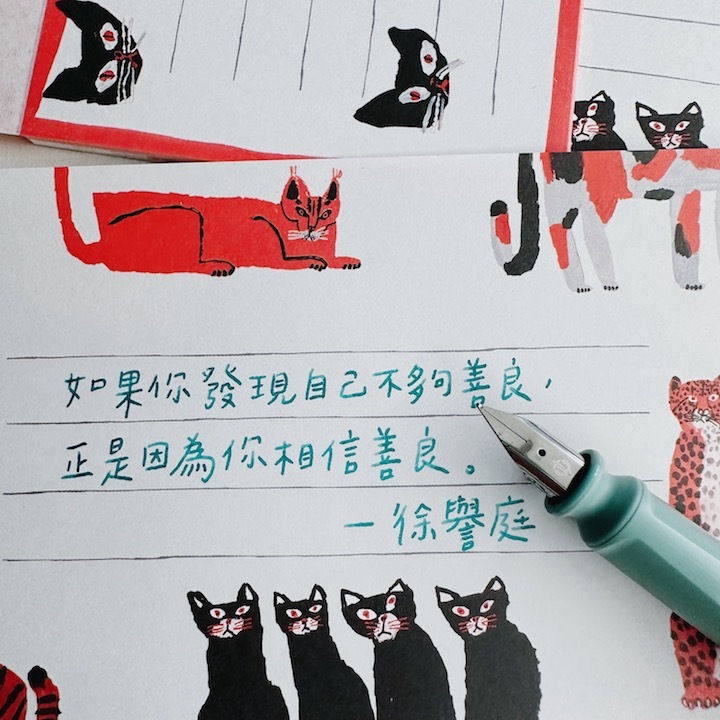 如果你發現自己不夠善良，
正是因為你相信善良。
—徐譽庭